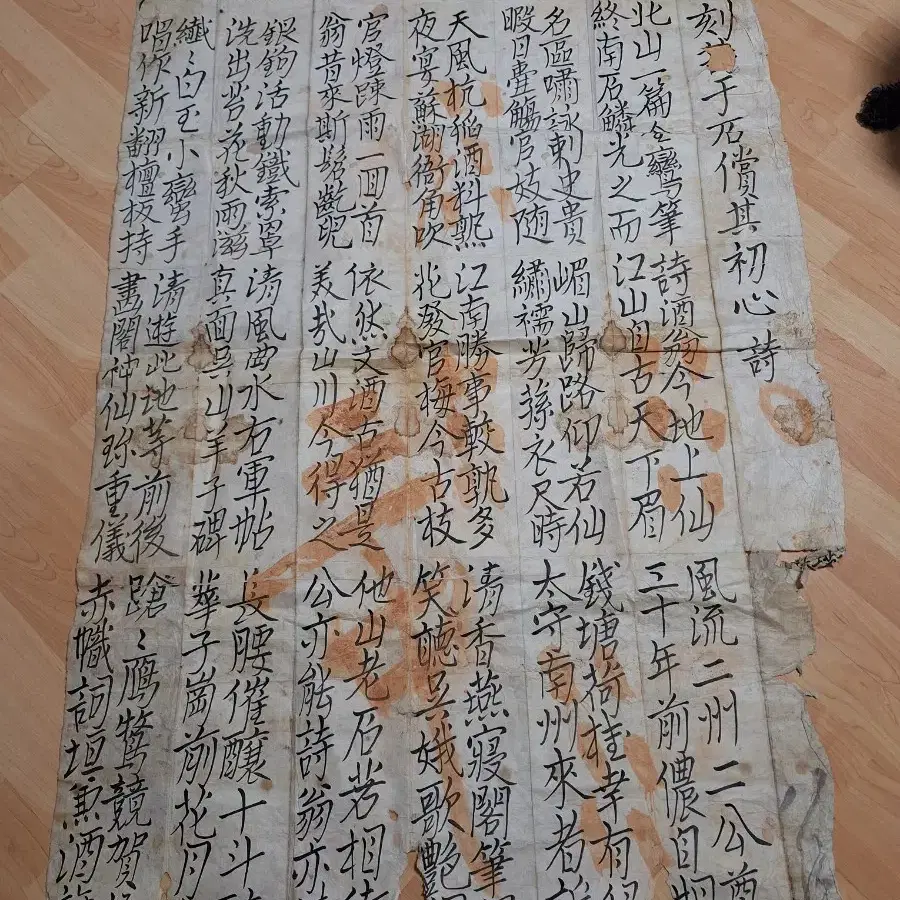 刻于石償其初心詩
北山一篇公鸞筆
終南石鱗光之而
名區嘯詠刺史貴
暇日壺觴官妓随
天風杭稻酒料熟
夜宴蘇湖衙角吹
官燈踈雨一回首
翁昔來斯髫齔皃
銀鉤活動鐵索罩
洗出苔花秋雨滋
纖〻白玉小鸞手
唱作新翻檀板持
詩酒翁今地上仙
江山自古天下眉
嵋山歸路仰若仙
繡襦芳蓀衣尺時
江南勝事較孰多
花發官梅今古枝
依然文酒古猶是
美哉山川今得之
清風曲水右軍帖
真面吳山羊子碑
清遊此地等前後
畵閣神仙珎重儀
風流二州二公
二十年前儂自
錢塘荷桂幸有
太守南州來者
清香燕寢閣筆
笑聽吳娥歌艶
他山老石若相
公亦能詩翁亦
長腰催釀十斗
華子崗前花月
蹌〻鴈鶩競賀
赤幟詞垣兼酒